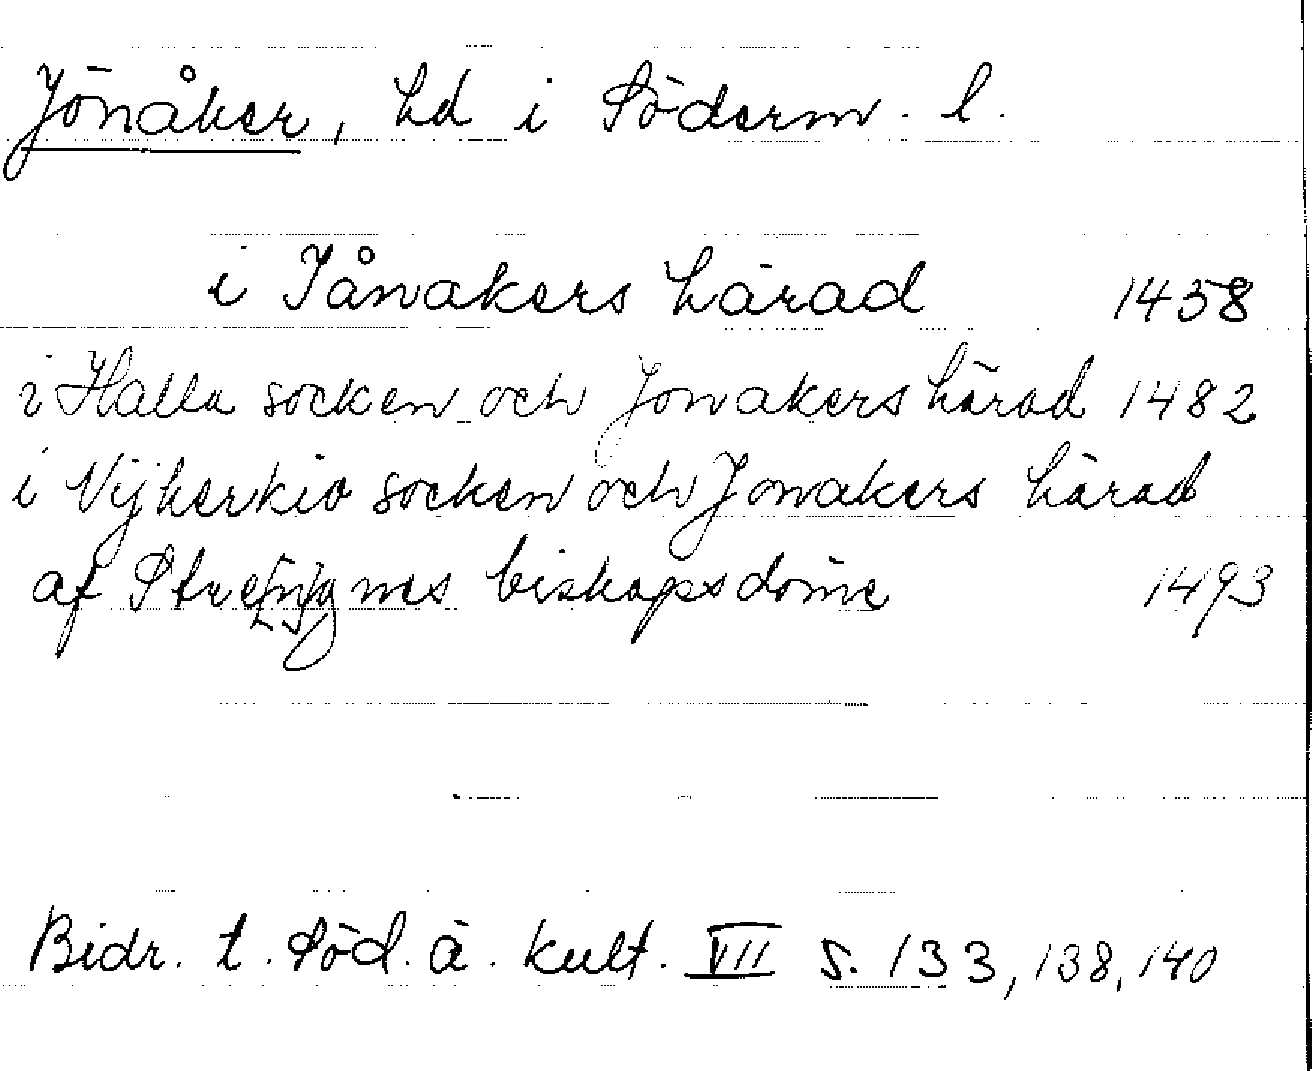 Jönåker, hd i Söderm. l.
i Jånakers härad 1458
i Halla socken och Jonakers härad 1482
i Vijkerkio socken och Jonakers härad
af Stre[n]gnes biskopsdöme 1493
Bidr. t. Söd. ä. kult. VII s. 133, 138, 140